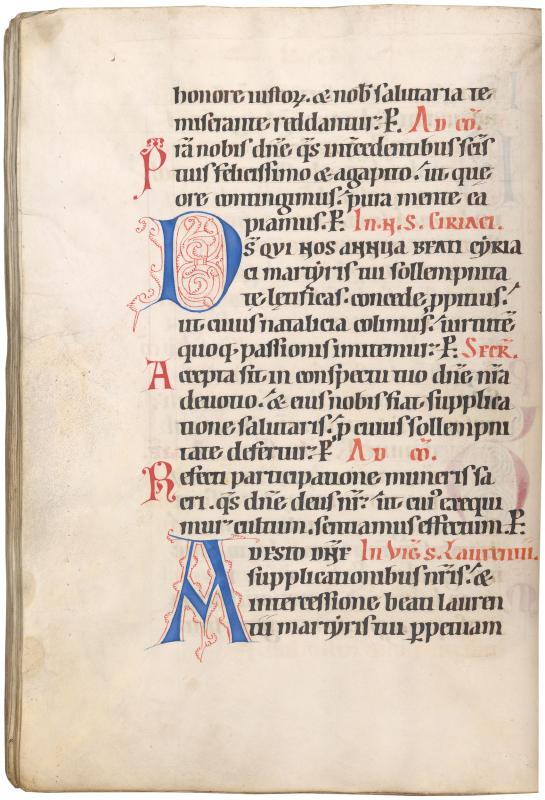 honore iustoꝝ. & nob̄ salutaria te
miserante reddantur: P̄. Ad cō.
Pira nobis dn̄e q̄s int̄cedentibus sc̄is
tuis felicissimo & agapito. ut que
ore contingimus. pura mente ca
piamus. P̄. In. N. S. Ciriaci.
Ds̄ qui nos annua beati cẏria
ci martẏris tui sollempnita
te lętificas. concede ꝓpitius.
ut cuius natalicia colimus. uirtutē
quoq; passionis imitemur: P̄. Secr̄.
Accepta sit in conspectu tuo dn̄e nr̄a
deuotio. & eius nobis fiat supplica
tione salutaris. ꝓ cuius sollempni
tate defertur: P̄ Ad cō.
Refecti participatione muneris sa
cri. q̄s dn̄e deus nr̄: ut cui᾽ exequi
mur cultum. sentiamus effectum. P̄.
Adesto dn̄e In Viḡ s. Laurentii.
supplicationibus nr̄is. &
intercessione beati lauren
tii martẏris tui ꝑpetuam